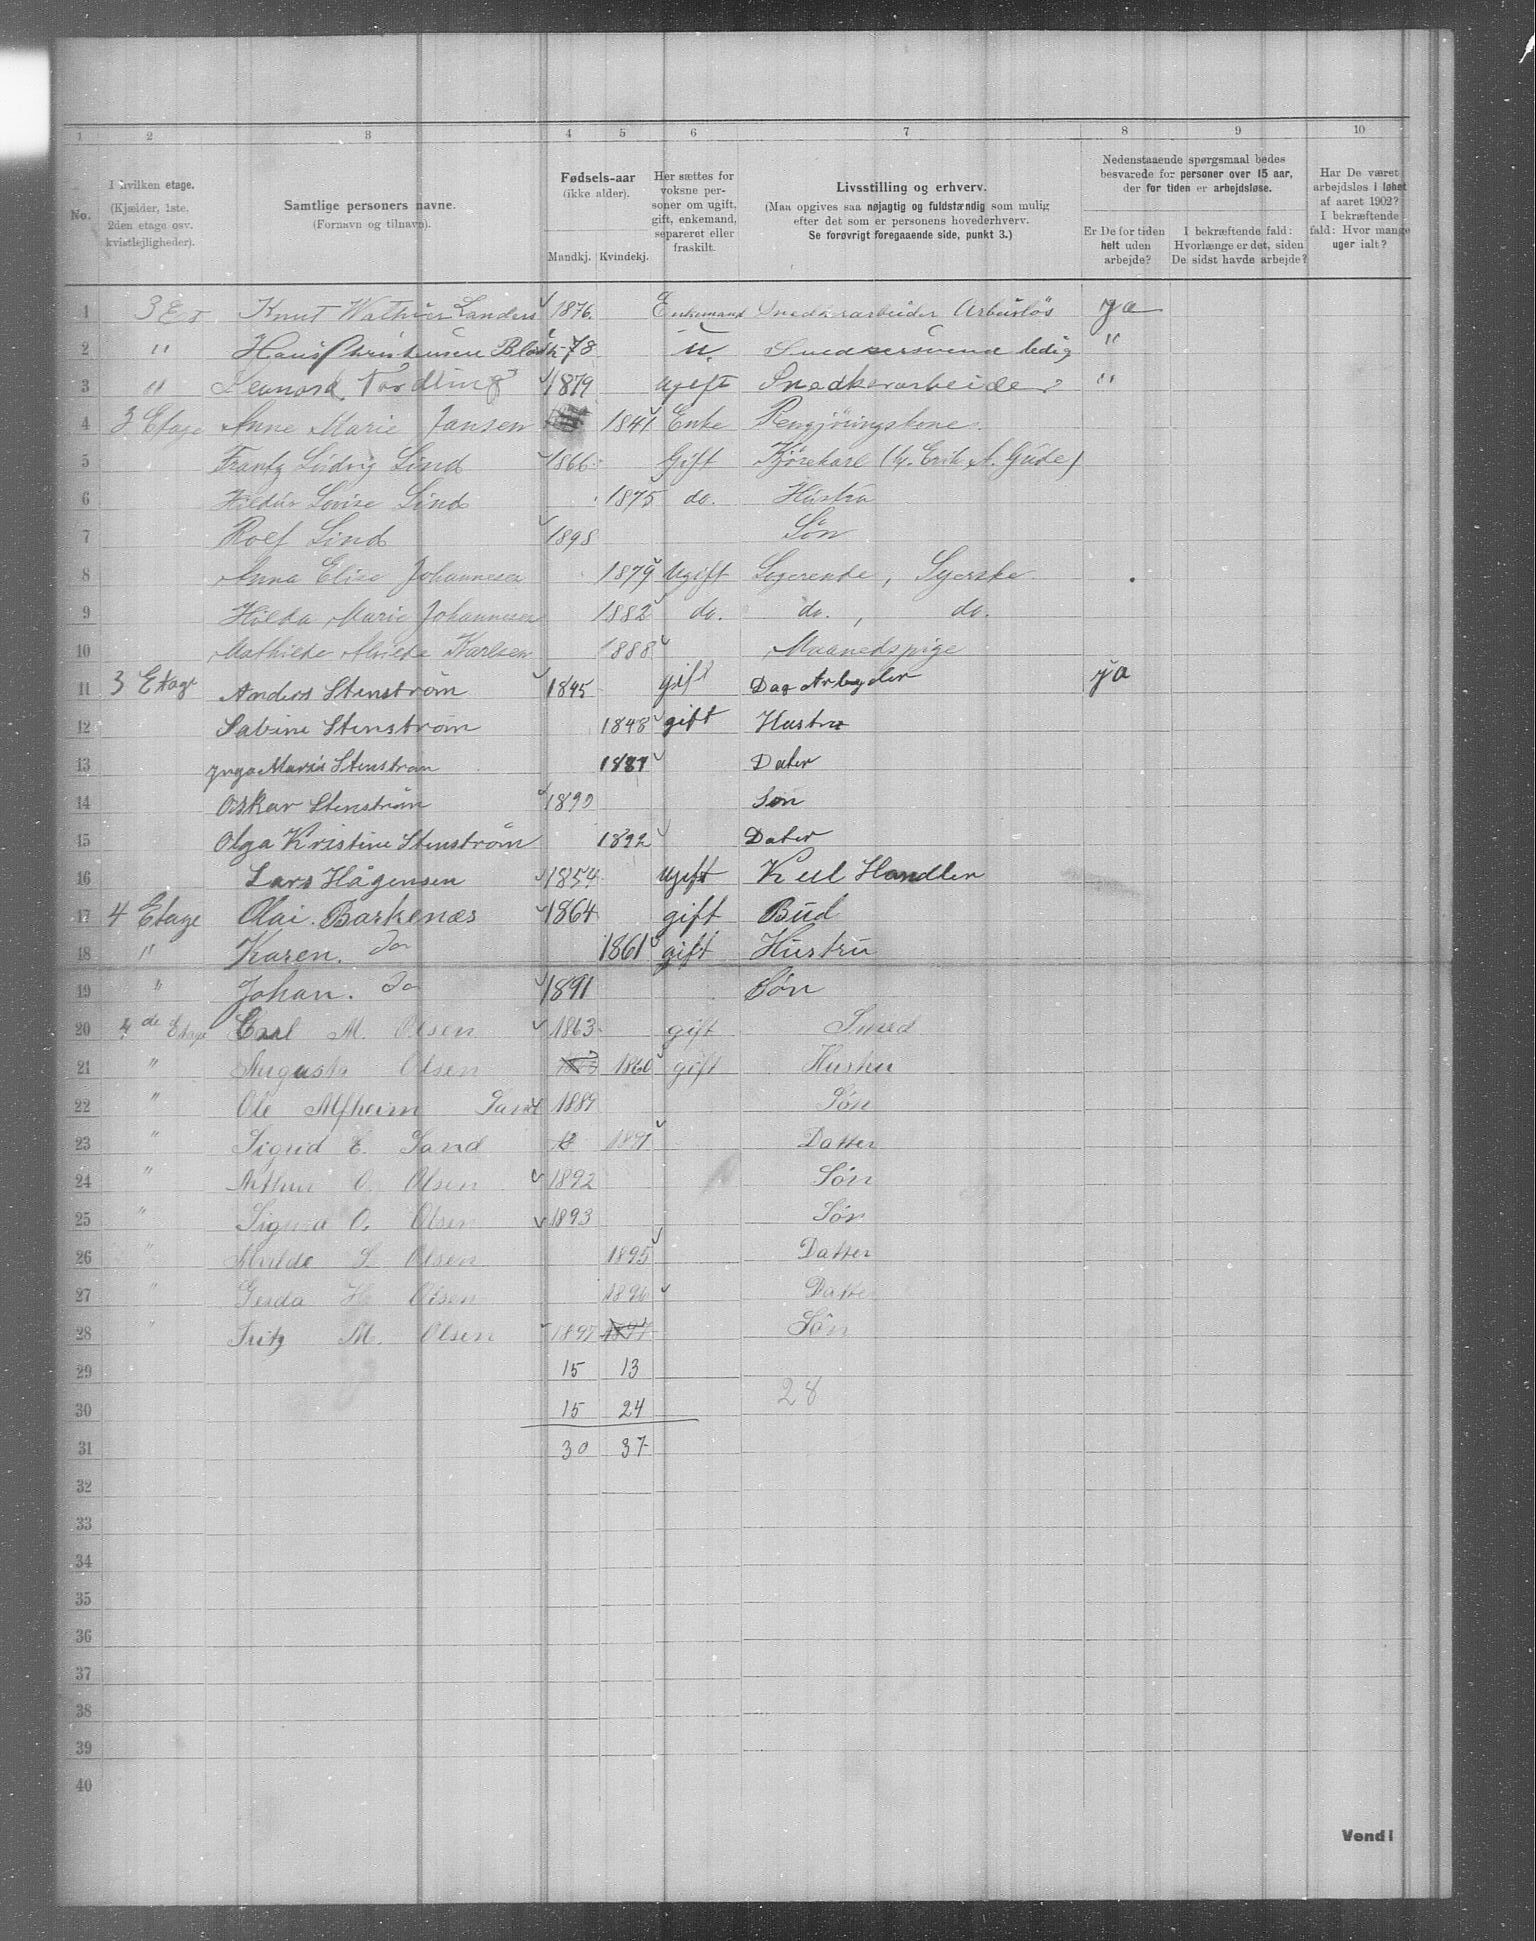 1 2 3 4 5 6 7 8 9 10
No.
I hvilken etage.
(Kjælder, 1ste.
2den etage osv.
kvistlejligheter).
Samtlige personers navne.
(Fornavn og tilnavn).
Fødsels-aar
(ikke alder).
Mandkj. Kvindekj.
Her sættes for
voksne per-
soner om ugift,
gift, enkemand,
separeret eller
fraskilt.
Livsstilling og erhverv.
(Maa opgives saa nøjagtig og fuldstændig som mulig
efter det som er personens hovederhverv.
Se forøvrigt foregaaende side, punkt 3.)
Nedenstaaende spørgsmaal bedes
besvarede for personer over 15 aar,
der for tiden er arbejdsløse.
Er De for tiden
helt uden
arbejde?
I bekræftende fald:
Hvorlænge er det, siden
De sidst havde arbejde?
Har De været
arbejdsløs i løbet
af aaret 1902?
I bekræftende
fald: Hvor mange
uger ialt?
1 3 Et Knut Landers 1876. Enkemand Snedkerarbeider Arbeisløs ja
2 " Hans Christensen 78 u. Snedkersvend ledig "
3 " Leonard Nordling 1879 Ugift Snedkerarbeider "
4 3 Etage Anne Marie Jansen 1841 Enke Rengjøringskone.
5 Frantz Ludvig Lind 1866 Gift Kjørekarl (hr. Erik A. Gude)
6 Hildur Lovise Lind 1875 do. Hustru
7 Rolf Lind 1898 Søn
8 Anna Elise Johannesen 1879 Ugift Logerende, Syerske
9 Hilda Marie Johannesen 1882 do. do. , do.
10 Mathilde Alvilde Karlsen 1888 Maanedspige
11 3 Etage Anders Stenstrøm 1845 gift Dag Arbeyder ja
12 Sabine Stenstrøm 1848 gift Hustru
13 Ynga Maria Stenstrøm 1887 Dater
14 Oskar Stenstrøm 1890 Søn
15 Olga Kristine Stenstrøm 1892 Dater
16 Lars Hågensen 1854 Ugift Kul Handler
17 4 Etage Olai. Barkenæs 1864 gift Bud
18 " Karen. Do 1861 gift Hustru
19 " Johan. Do 1891 Søn
20 4de Etage Carl M. Olsen 1863 gift Smed
21 " Augusta Olsen 1860 gift Hustru
22 " Ole Alfheim Sand 1889 Søn
23 " Sigrid E. Sand 1891 Datter
24 " Arthur O. Olsen 1892 Søn
25 " Sigurd O. Olsen 1893 Søn
26 " Alvilde S. Olsen 1895 Datter
27 " Gerda H. Olsen 1896 Datter
28 " Fritz M. Olsen 1897 1897 Søn
29 15 13
30 15 24 28
31 30 37
32
33
34
35
36
37
38
39
40
Vend!